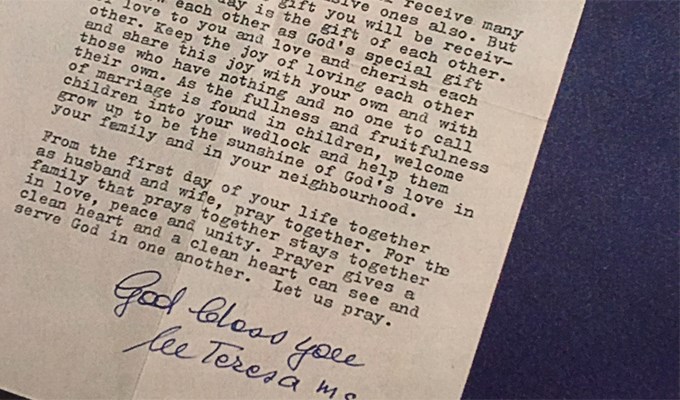 receive many
sive ones also. But
day is the gift you will be receiv-
each other as God's special gift
love to you and love and cherish each other.
other. Keep the joy of loving each other
and share this joy with your own and with
those who have nothing and no one to call
their own. As the fullness and fruitfulness
of marriage is found in children, welcome
children into your wedlock and help them
grow up to be the sunshine of God's love in
your family and in your neighbourhood.
From the first day of your life together
as husband and wife, pray together. For the
family that prays together stays together
in love, peace and unity. Prayer gives a
clean heart and a clean heart can see and
serve God in one another. Let us pray.
God bless you
lee Teresa mc